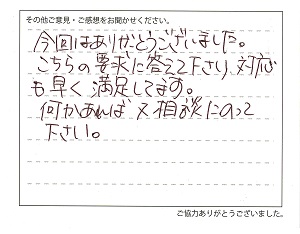 その他ご意見・ご感想をお聞かせください。
今回はありがとうございました。
こちらの要求に答えて下さり、対応
も早く満足してます。
何かあれば又相談にのって
下さい。
ご協力ありがとうございました。